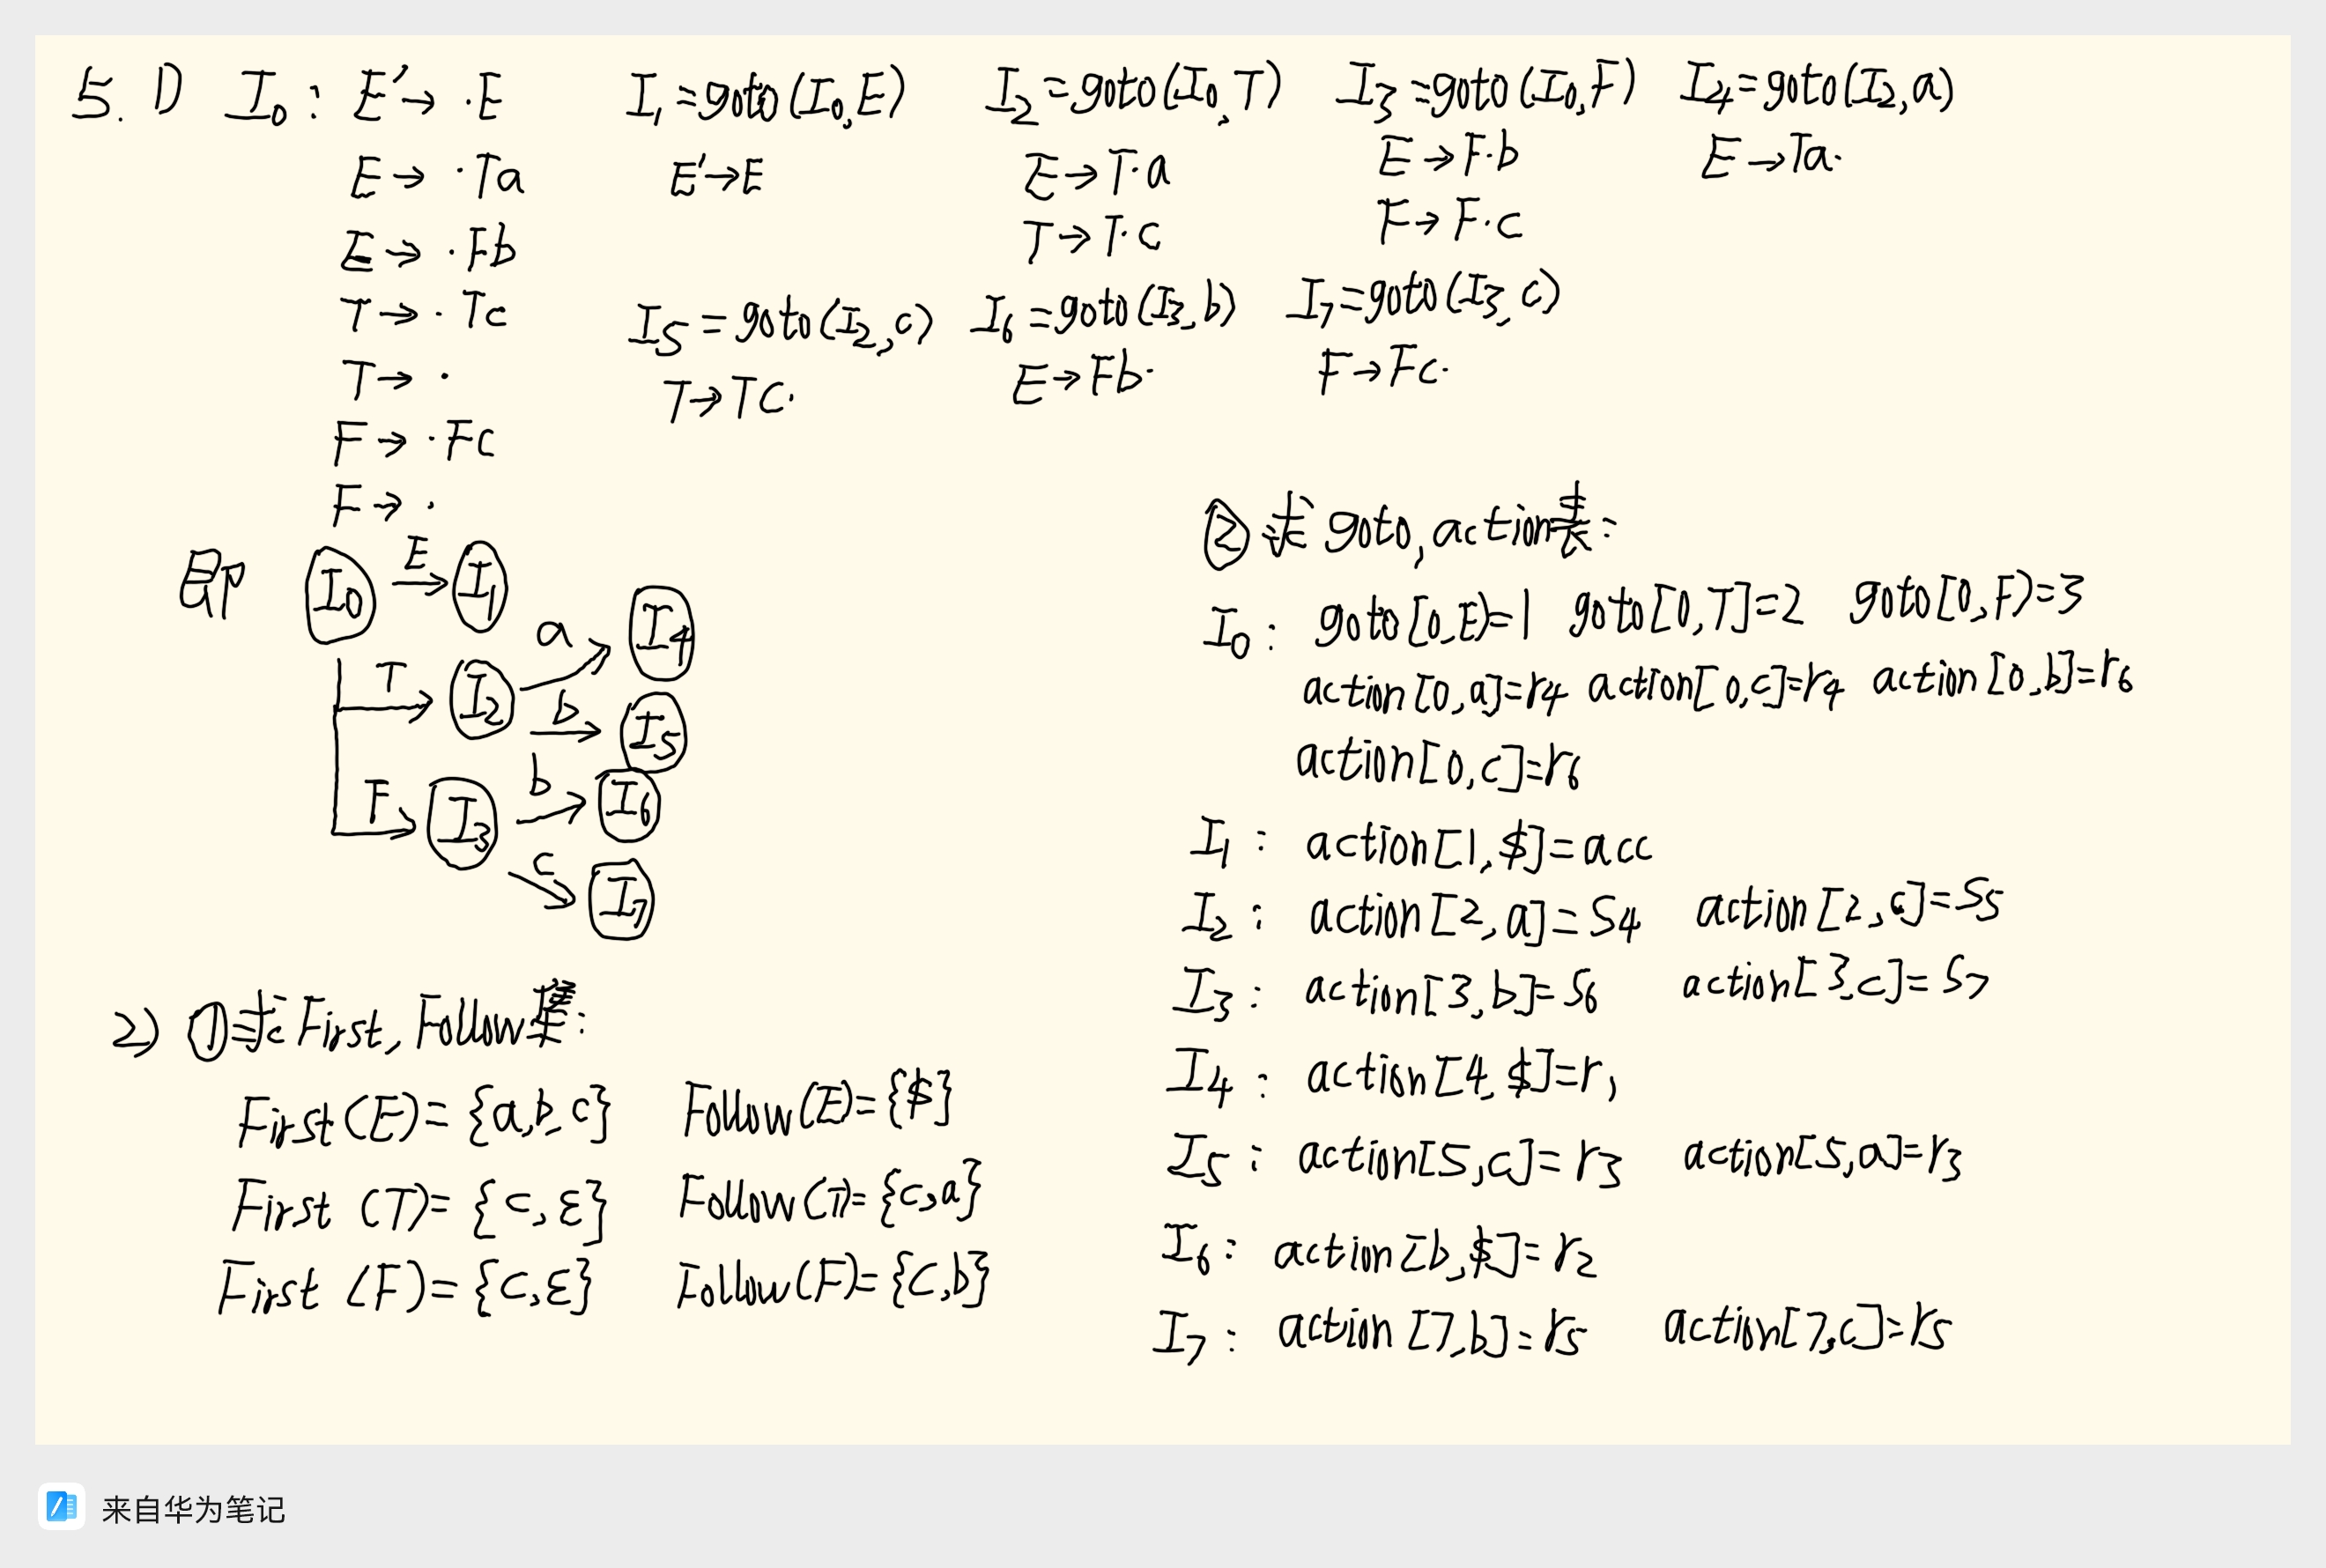 5. 1) I₀: E'→ ·E I₁=goto(I₀,E) I₂=goto(I₀,T) I₃=goto(I₀,F) I₄=goto(I₂,a)
E→ ·Ta E'→E E→T·a E→F·b E→Ta·
E→ ·Fb T→T·c F→F·c
T→ ·Tc I₅=goto(I₂,c) I₆=goto(I₃,b) I₇=goto(I₃,c)
T→ · T→TC· E→Fb· F→Fc·
F→ ·Fc
F→ ·
即 I₀ E I₁
T I₂ a I₄
b I₅
F I₃ b I₆
c I₇
2) ①求First, Follow集:
First(E)={a,b,c} Follow(E)={$}
First(T)={c,ε} Follow(T)={c,a}
First(F)={c,ε} Follow(F)={c,b}
②求goto,action表:
I₀: goto[0,E)=1 goto[0,T]=2 goto[0,F)=3
action[0,a]=r4 action[0,c]=r4 action[0,b]=r6
action[0,c]=r6
I₁: action[1,$]=acc
I₂: action[2,a]=S4 action[2,c]=S5
I₃: action[3,b]=S6 action[3,c]=S7
I₄: action[4,$]=r1
I₅: action[5,c]=r3 action[5,a]=r3
I₆: action[6,$]=r2
I₇: action[7,b]=r5 action[7,c]=r5
来自华为笔记